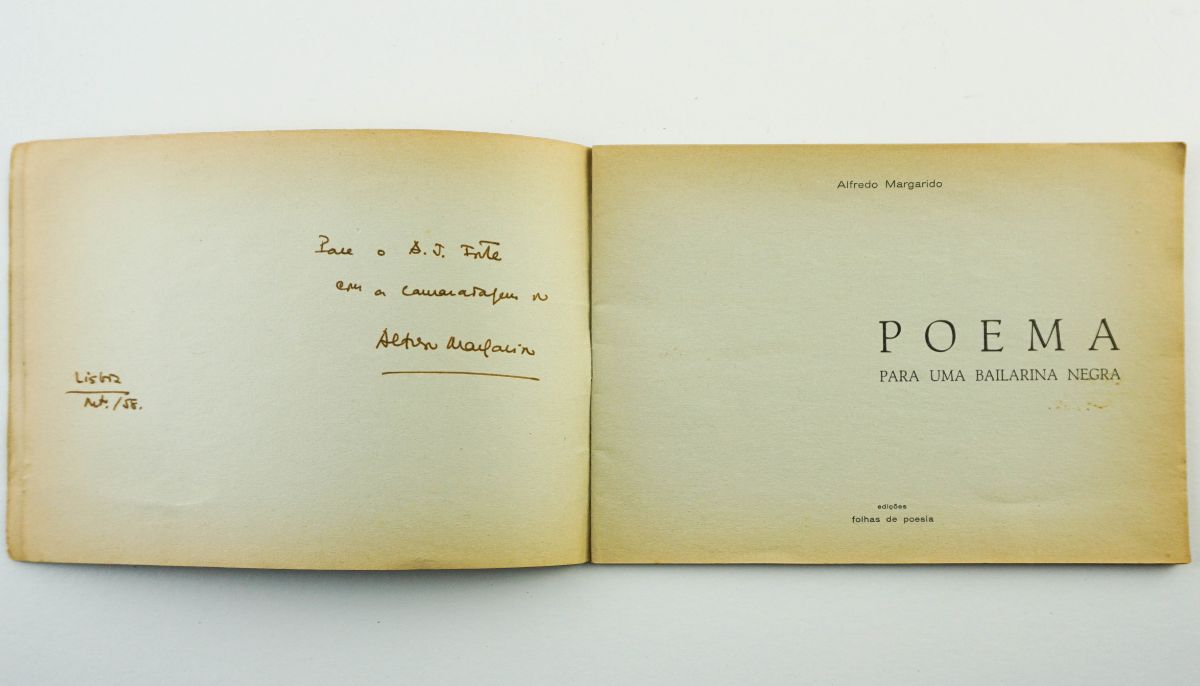 Para o A. J. Forte
com a camaradagem do
Alfredo Margarido
Lisboa
/58.
Alfredo Margarido
POEMA
PARA UMA BAILARINA NEGRA
edições
folhas de poesia